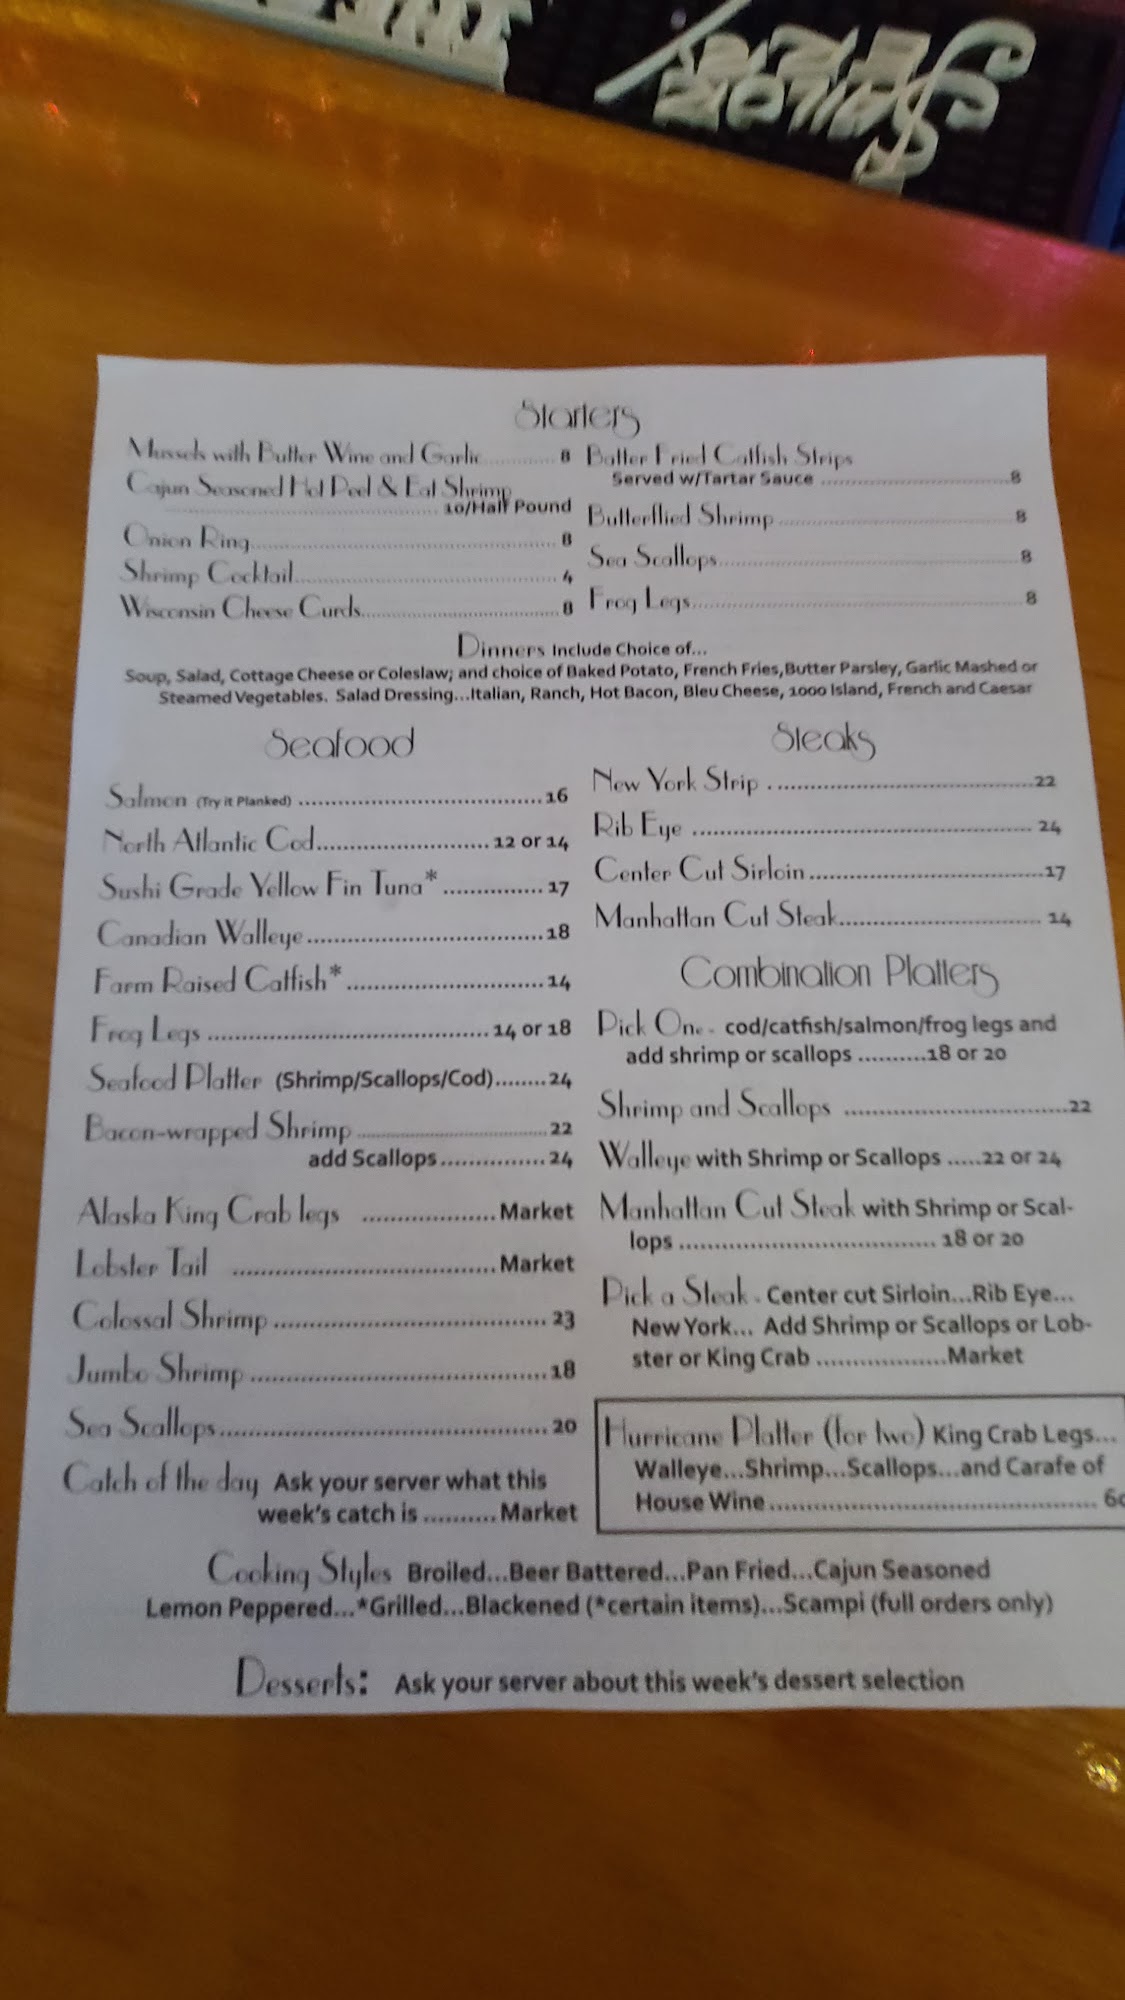 Sailor
Starters
Mussels with Butter Wine and Garlic.............. 8
Cajun Seasoned Hot Peel & Eat Shrimp
................................................ 10/Half Pound
Onion Ring................................................ 8
Shrimp Cocktail................................................ 4
Wisconsin Cheese Curds................................ 8
Batter Fried Catfish Strips
Served w/Tartar Sauce ................................8
Butterflied Shrimp................................ 8
Sea Scallops................................ 8
Frog Legs................................ 8
Dinners Include Choice of...
Soup, Salad, Cottage Cheese or Coleslaw; and choice of Baked Potato, French Fries,Butter Parsley, Garlic Mashed or
Steamed Vegetables. Salad Dressing...Italian, Ranch, Hot Bacon, Bleu Cheese, 1000 Island, French and Caesar
Seafood
Salmon (Try it Planked) ................................16
North Atlantic Cod......................... 12 or 14
Sushi Grade Yellow Fin Tuna*............... 17
Canadian Walleye..................................18
Farm Raised Catfish*.............................14
Frog Legs ........................................14 or 18
Seafood Platter (Shrimp/Scallops/Cod)........24
Bacon-wrapped Shrimp................................22
add Scallops...............24
Alaska King Crab legs ...................Market
Lobster Tail ......................................Market
Colossal Shrimp....................................... 23
Jumbo Shrimp..........................................18
Sea Scallops............................................... 20
Catch of the day Ask your server what this
week's catch is ..........Market
Steaks
New York Strip .....................................22
Rib Eye ................................................ 24
Center Cut Sirloin..................................17
Manhattan Cut Steak............................. 14
Combination Platters
Pick One - cod/catfish/salmon/frog legs and
add shrimp or scallops ..........18 or 20
Shrimp and Scallops ................................22
Walleye with Shrimp or Scallops .....22 or 24
Manhattan Cut Steak with Shrimp or Scal-
lops ..................................... 18 or 20
Pick a Steak - Center cut Sirloin...Rib Eye...
New York... Add Shrimp or Scallops or Lob-
ster or King Crab ...................Market
Hurricane Platter (for two) King Crab Legs...
Walleye...Shrimp...Scallops...and Carafe of
House Wine...............................................
Cooking Styles Broiled...Beer Battered...Pan Fried...Cajun Seasoned
Lemon Peppered...*Grilled...Blackened (*certain items)...Scampi (full orders only)
Desserts: Ask your server about this week's dessert selection